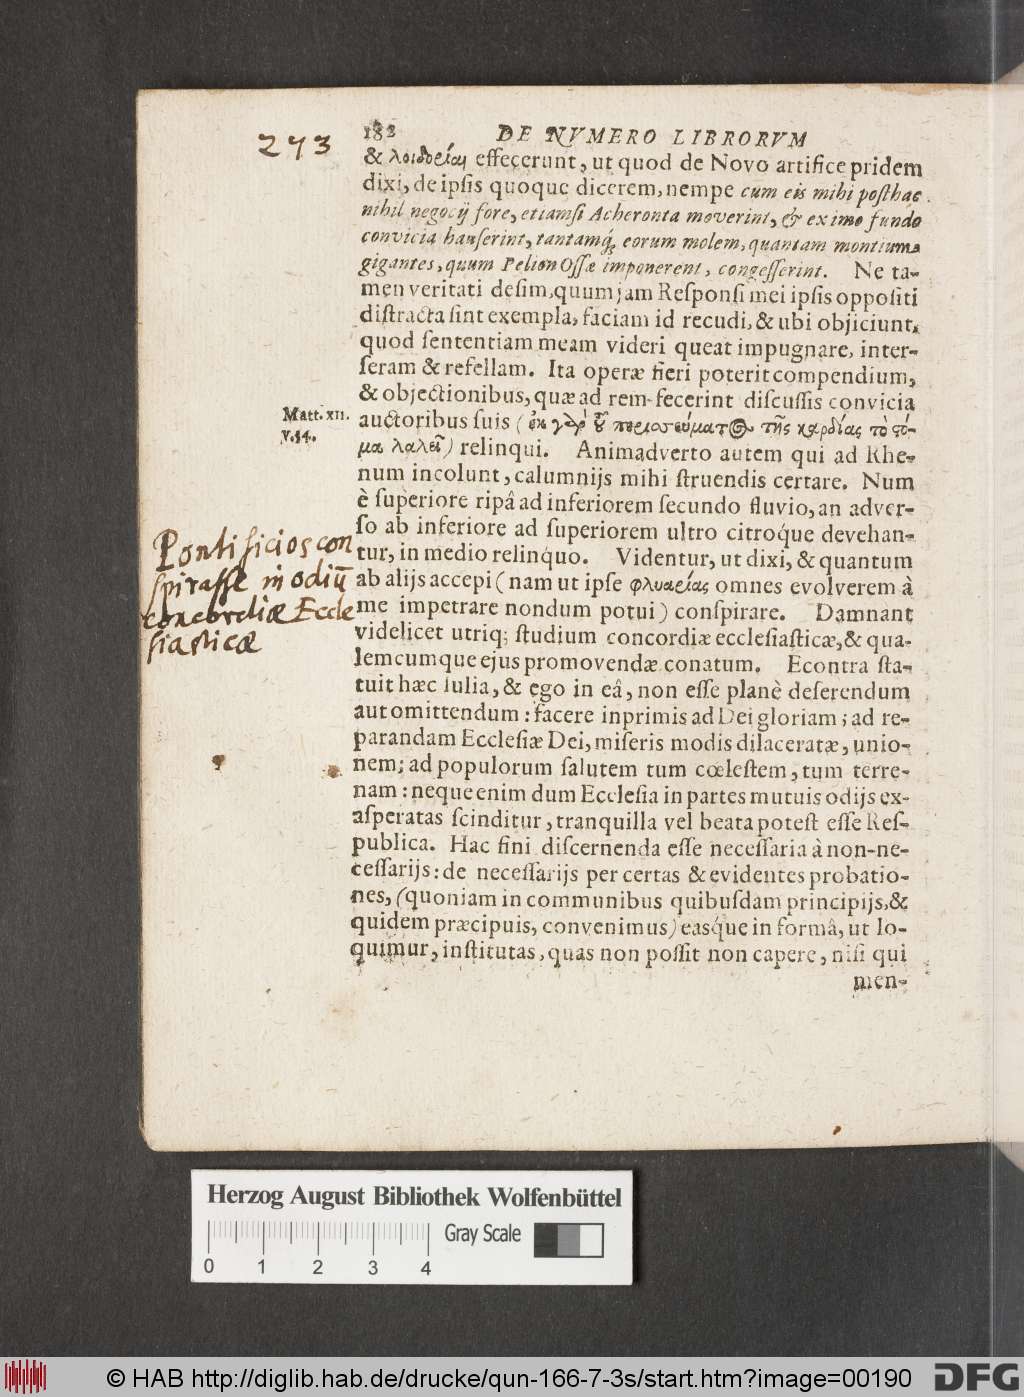 273
182 DE NVMERO LIBRORVM
& λοιδορίαι effecerunt, ut quod de Novo artifice pridem
dixi, de ipsis quoque dicerem, nempe cum eis mihi posthac
nihil negocij fore, etiamsi Acheronta moverint, & ex imo fundo
convicia hauserint, tantamq́; eorum molem, quantam montium
gigantes, quum Pelion Ossæ imponerent, congesserint. Ne ta-
men veritati desim, quum jam Responsi mei ipsis oppositi
distracta sint exempla, faciam id recudi, & ubi objiciunt,
quod sententiam meam videri queat impugnare, inter-
seram & refellam. Ita operæ fieri poterit compendium,
& objectionibus, quæ ad rem fecerint discussis convicia
Matt. XII.
v. 34.
auctoribus suis (ἐκ γὰρ τοῦ περισσεύματος τῆς καρδίας τὸ στό-
μα λαλεῖ) relinqui. Animadverto autem qui ad Rhe-
num incolunt, calumnijs mihi struendis certare. Num
è superiore ripâ ad inferiorem secundo fluvio, an adver-
so ab inferiore ad superiorem ultro citroq́ue devehan-
tur, in medio relinquo. Videntur, ut dixi, & quantum
ab alijs accepi (nam ut ipse φλυαρίας omnes evolverem à
me impetrare nondum potui) conspirare. Damnant
videlicet utriq; studium concordiæ ecclesiasticæ, & qua-
lemcumque ejus promovendæ conatum. Econtra sta-
tuit hæc Iulia, & ego in eâ, non esse planè deserendum
aut omittendum: facere inprimis ad Dei gloriam; ad re-
parandam Ecclesiæ Dei, miseris modis dilaceratæ, unio-
nem; ad populorum salutem tum cœlestem, tum terre-
nam: neque enim dum Ecclesia in partes mutuis odijs ex-
asperatas scinditur, tranquilla vel beata potest esse Res-
publica. Hac fini discernenda esse necessaria à non-ne-
cessarijs: de necessarijs per certas & evidentes probatio-
nes, (quoniam in communibus quibusdam principijs, &
quidem præcipuis, convenimus) easq́ue in formâ, ut lo-
quimur, institutas, quas non possit non capere, nisi qui
men-
Pontificios con
spirasse in odiū
concordiæ Eccle
siasticæ
Herzog August Bibliothek Wolfenbüttel
Gray Scale
0 1 2 3 4
© HAB http://diglib.hab.de/drucke/qun-166-7-3s/start.htm?image=00190
DFG